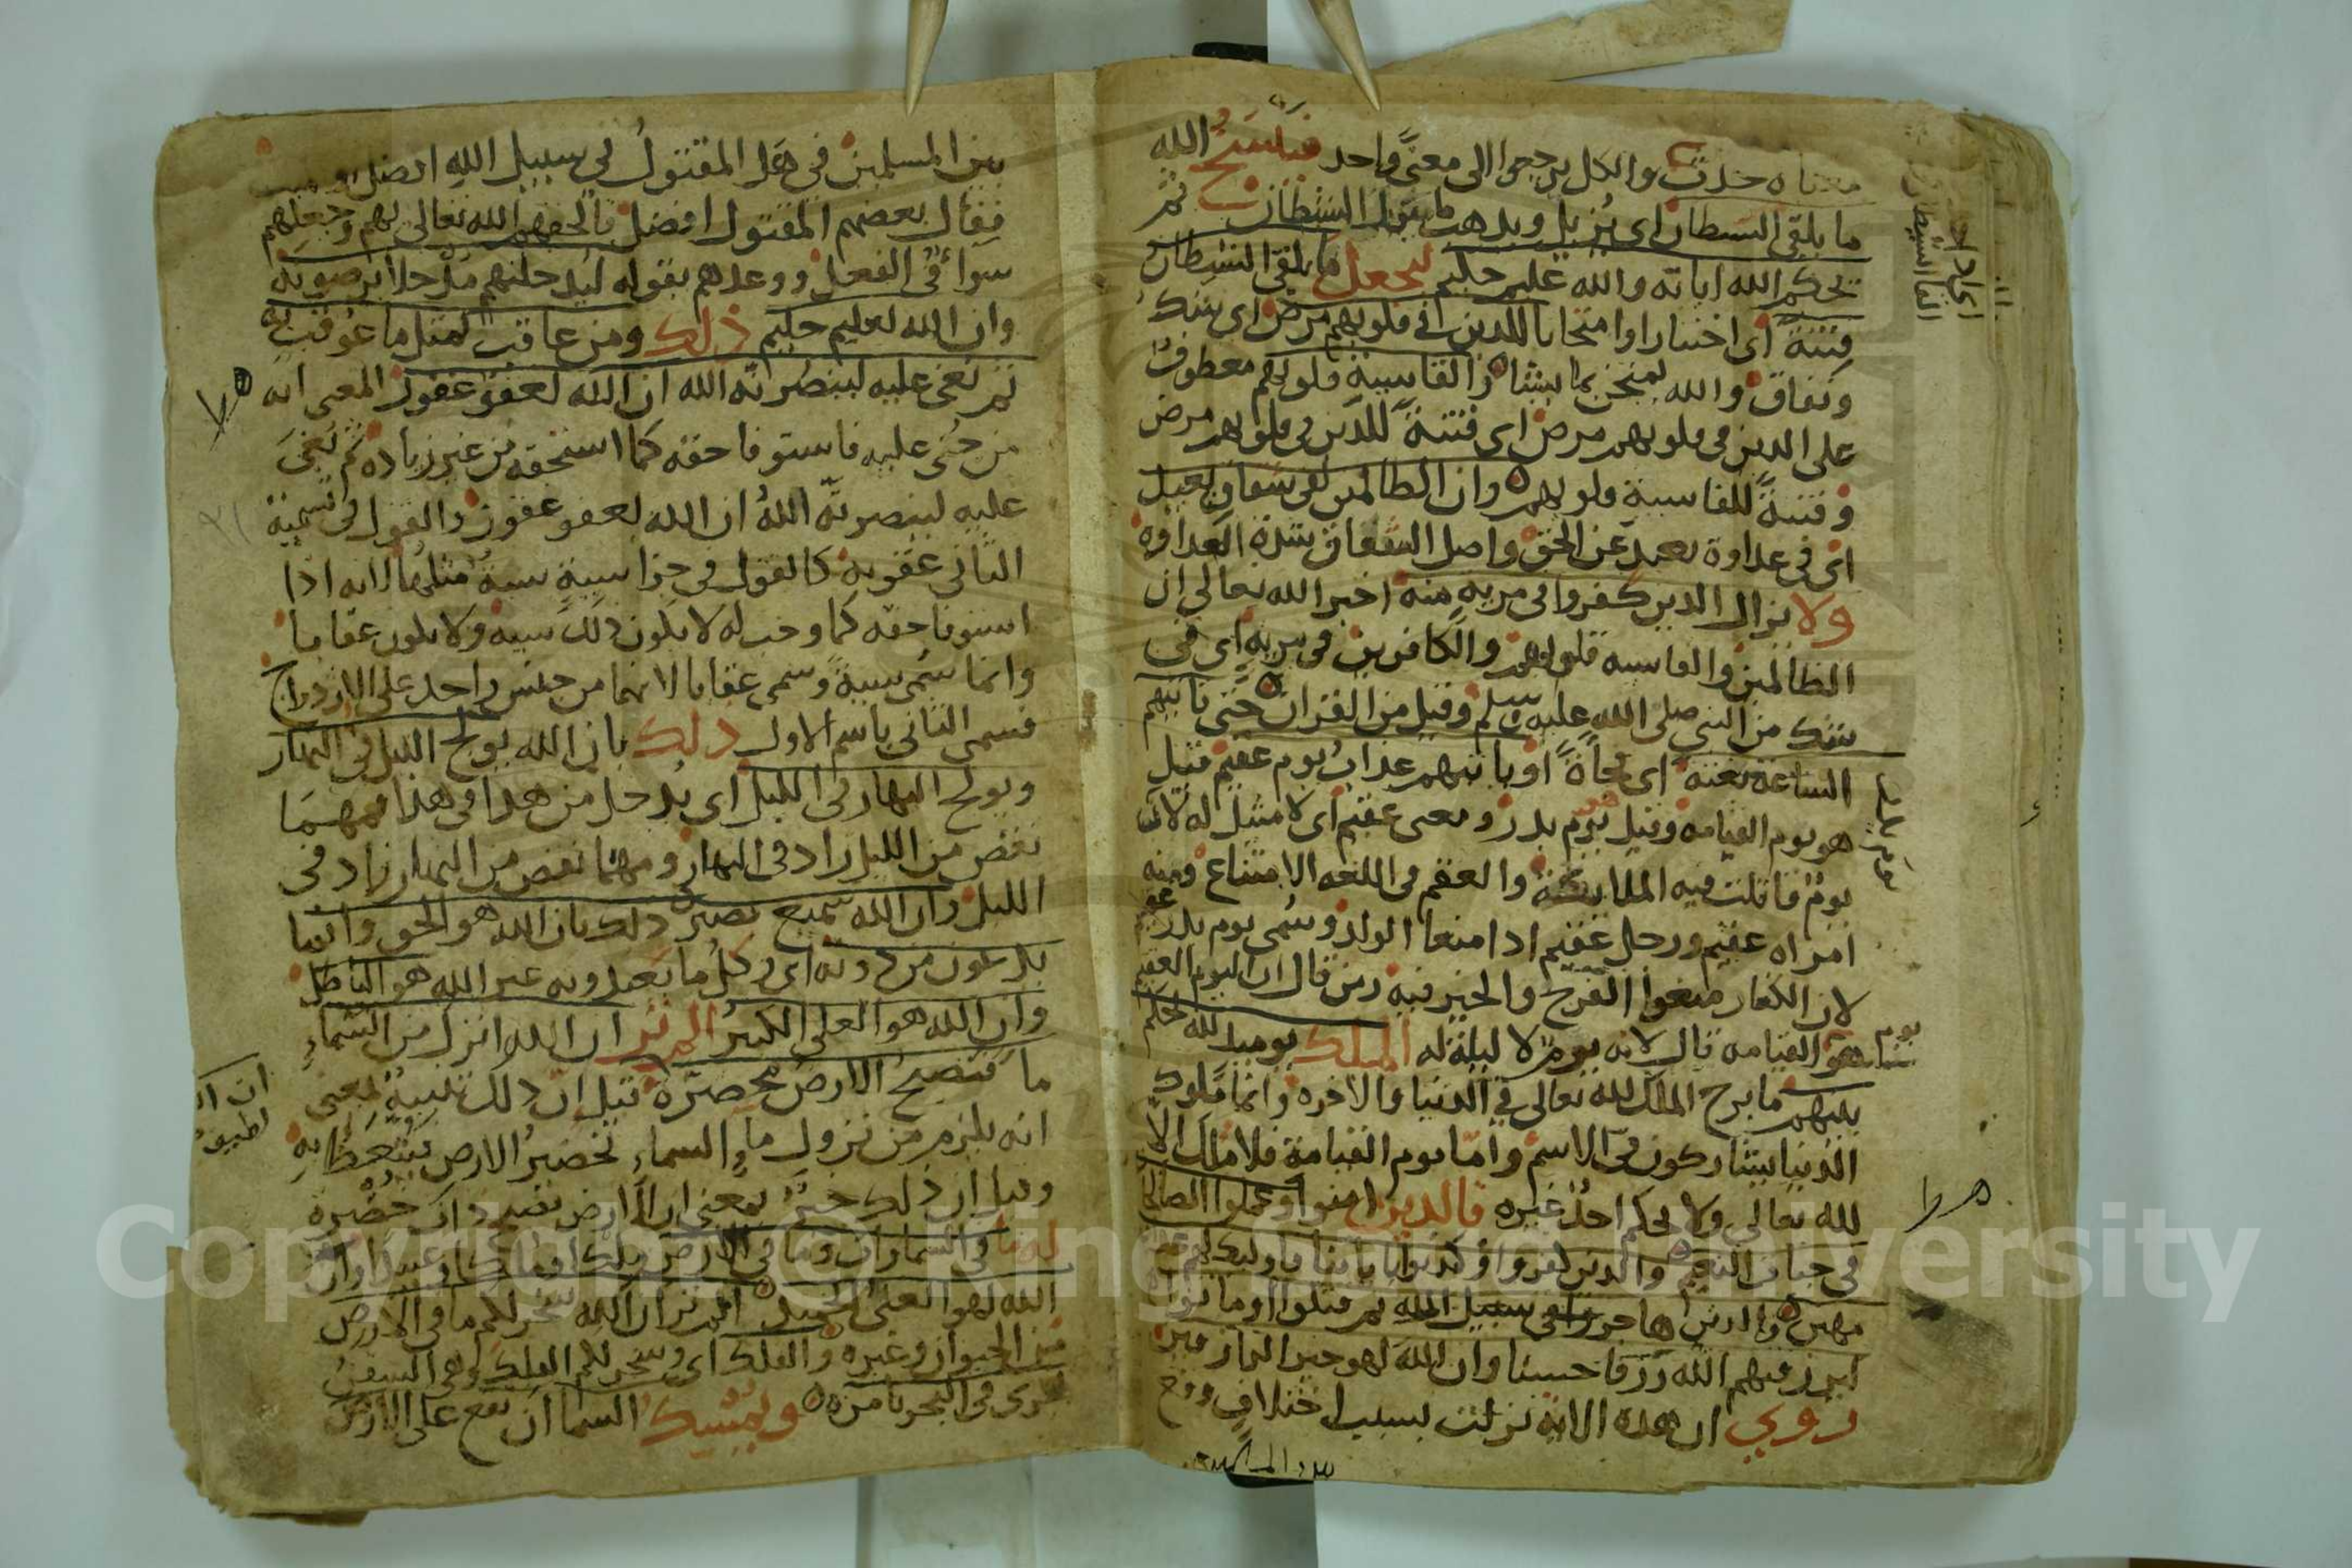 معناه حدث والكل يرجع الى معنى واحد فينسخ الله
ما يلقي الشيطان اى يزيل ويذهب ما يقول الشيطان ثم
يحكم الله اياته والله عليم حكيم ليجعل ما يلقي الشيطان
فتنة اى اختبارا وامتحانا للذين فى قلوبهم مرض اى شك
ونفاق والله يمتحن بما يشاء والقاسية قلوبهم معطوف
على الذين فى قلوبهم مرض اى فتنة للذين فى قلوبهم مرض
وفتنة للقاسية قلوبهم وان الظالمين لفى شقاق بعيد
اى فى عداوة بعيد عن الحق واصل الشقاق شدة العداوة
ولا يزال الذين كفروا فى مرية منه اخبر الله تعالى ان
الظالمين والقاسيه قلوبهم والكافرين فى مرية اى فى
شك من النبي صلى الله عليه وسلم وقيل من القران حتى تاتيهم
الساعة بغتة اى فجأة او ياتيهم عذاب يوم عقيم قيل
هو يوم القيامه وقيل يوم بدر ومعنى عقيم اى لا مثل له لانه
يوم قاتلت فيه الملائكة والعقم فى اللغه الامتناع ومنه
امراه عقيم ورجل عقيم اذا منعا الولد وسمى يوم بدر عقيم
لان الكفار منعوا الفرح والخير فيه ومن قال ان اليوم العقيم
هو القيامه قال لانه يوم لا ليلة له الملك يوميذ لله يحكم
بينهم ما برح الملك لله تعالى فى الدنيا والاخره وانما ملوك
الدنيا يشاركون فى الاسم واما يوم القيامة فلا مالك الا
لله تعالى ولا يحكم احد غيره فالذين امنوا وعملوا الصالحات
فى جنات النعيم والذين كفروا وكذبوا باياتنا فاوليك لهم عذاب
مهين والذين هاجروا فى سبيل الله ثم قتلوا او ماتوا
ليرزقنهم الله رزقا حسنا وان الله لهو خير الرازقين
روي ان هذه الاية نزلت بسبب اختلاف وقع
بين المسلمين فى هل المقتول فى سبيل الله افضل او ميت
فقال بعضهم المقتول افضل فالحقهم الله تعالى بهم وجعلهم
سواء فى الفعل ووعدهم بقوله ليدخلنهم مدخلا يرضونه
وان الله لعليم حليم ذلك ومن عاقب بمثل ما عوقب به
ثم بغى عليه لينصرنه الله ان الله لعفو غفور المعنى انه
من جنى عليه فاستوفا حقه كما استحقه من غير زياده ثم بغى
عليه لينصرنه الله ان الله لعفو غفور والقول فى تسمية
الثانى عقوبة كالقول فى جزا سيية سيية مثلها لانه اذا
استوفا حقه كما وجب له لا يكون ذلك سيية ولا يكون عقابا
وانما سمى سيية وسمى عقابا لانهما من جنس واحد على الازدواج
فسمى الثانى باسم الاول ذلك بان الله يولج الليل فى النهار
ويولج النهار فى الليل اى يدخل من هذا فى هذا فمهما
نقص من الليل زاد فى النهار ومهما نقص من النهار زاد فى
الليل وان الله سميع بصير ذلك بان الله هو الحق وان ما
يدعون من دونه اى وكل ما يعبدونه غير الله هو الباطل
وان الله هو العلى الكبير الم تر ان الله انزل من السماء
ما فتصبح الارض مخضرة قيل ان ذلك تنبيه بمعنى
انه يلزم من نزول ماء السماء تخضير الارض به
وقيل ان ذلك خبر بمعنى ان الارض تصبح ذات خضرة
له ما فى السماوات وما فى الارض ملكا وعبيدا وان
الله لهو الغنى الحميد الم تر ان الله سخر لكم ما فى الارض
من الحيوان وغيره والفلك اى وسخر لكم الفلك وهى السفن
تجرى فى البحر بامره ويمسك السما ان تقع على الارض